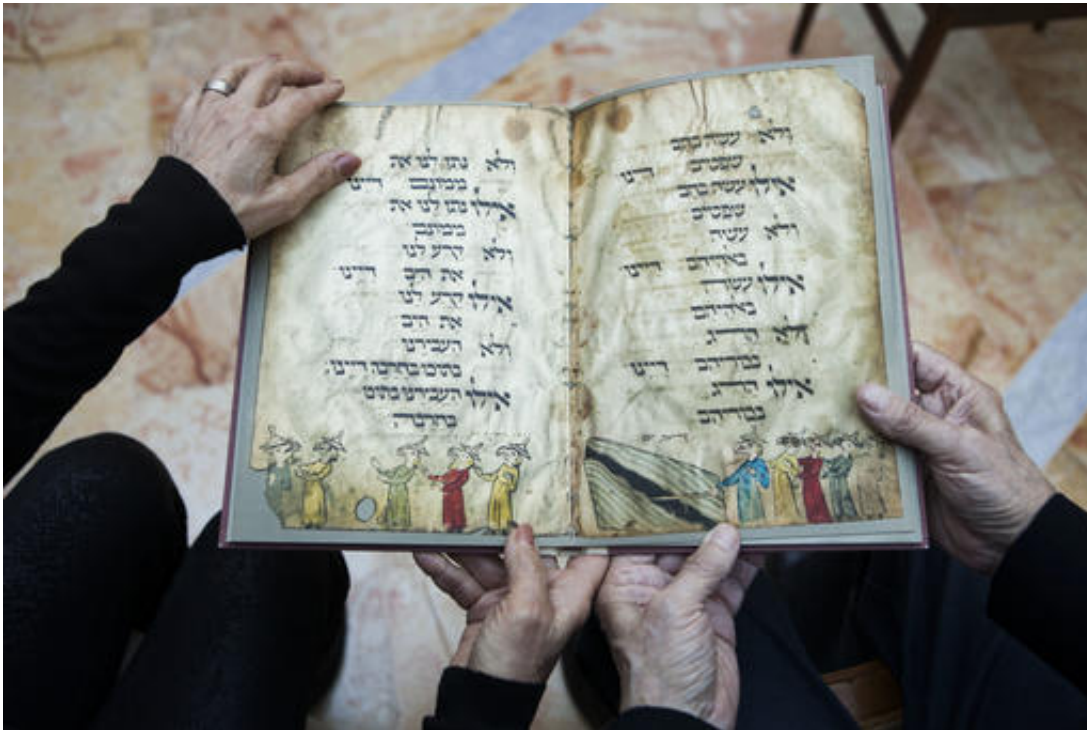 ולא עשה בהם
שפטים דיינו
אילו עשה בהם
שפטים
ולא עשה
באלהיהם דיינו
אילו עשה
באלהיהם
ולא הרג
בכוריהם דיינו
אילו הרג
בכוריהם
ולא נתן לנו את
ממונם דיינו
אילו נתן לנו את
ממונם
ולא קרע לנו
את הים דיינו
אילו קרע לנו
את הים
ולא העבירנו
בתוכו בחרבה דיינו
אילו העבירנו בתוכו
בחרבה